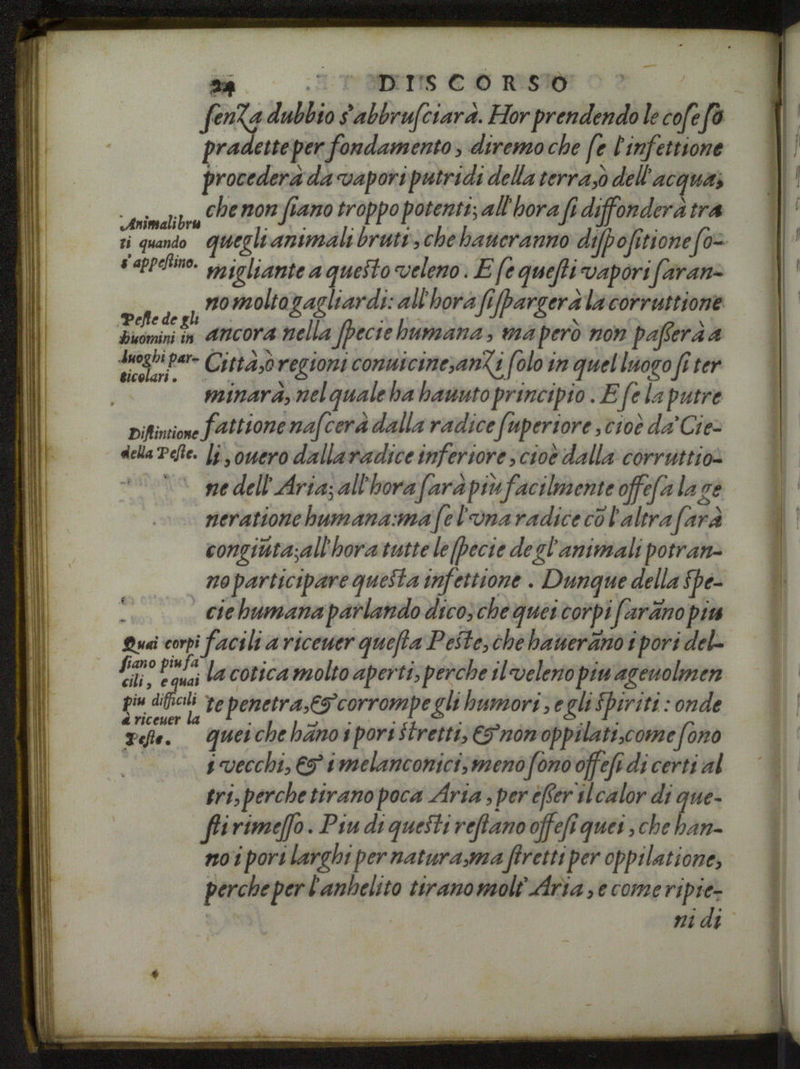 24 DISCORSO
ſenza dubbio s'abbruſciarà. Hor prendendo le coſe ſo
pradette per fondamento, diremo che ſe l'infettione
procederà da vapori putridi della terra,ò dell'acqua,
che non ſiano troppo potenti; all'hora ſi diffonderà tra
Animali bru
ti quando
s'appeſtino.
quegli animali bruti, che haueranno diſpoſitione ſo-
migliante a queſto veleno. E ſe queſti vapori ſaran-
no molto gagliardi: all'hora ſi ſpargerà la corruttione
Peſte de gli
huomini in
luoghi par-
ticolari.
ancora nella ſpecie humana, ma però non paſſerà a
Città,ò regioni conuicine,anzi ſolo in quel luogo ſi ter
minarà, nel quale ha hauuto principio. E ſe la putre
Diſtintione
della Peſte.
fattione naſcerà dalla radice ſuperiore, cioè da' Cie-
li, ouero dalla radice inferiore, cioè dalla corruttio-
ne dell'Aria; all'hora ſarà più facilmente offeſa la ge
neratione humana:ma ſe l'vna radice cõ l'altra ſarà
congiũta;all'hora tutte le ſpecie degl'animali potran-
no participare queſta infettione. Dunque della ſpe-
cie humana parlando dico, che quei corpi ſarãno piu
Quai corpi
ſiano piu fa
cili, e quai
piu difficili
à riceuer la
Peſte.
facili a riceuer queſta Peſte, che hauerãno i pori del-
la cotica molto aperti, perche il veleno piu ageuolmen
te penetra,& corrompe gli humori, e gli ſpiriti: onde
quei che hãno i pori ſtretti, & non oppilati,come ſono
i vecchi, & i melanconici, meno ſono offeſi di certi al
tri,perche tirano poca Aria, per eſſer il calor di que-
ſti rimeſſo. Piu di queſti reſtano offeſi quei, che han-
no i pori larghi per natura,ma ſtretti per oppilatione,
perche per l'anhelito tirano molt'Aria, e come ripie-
ni di